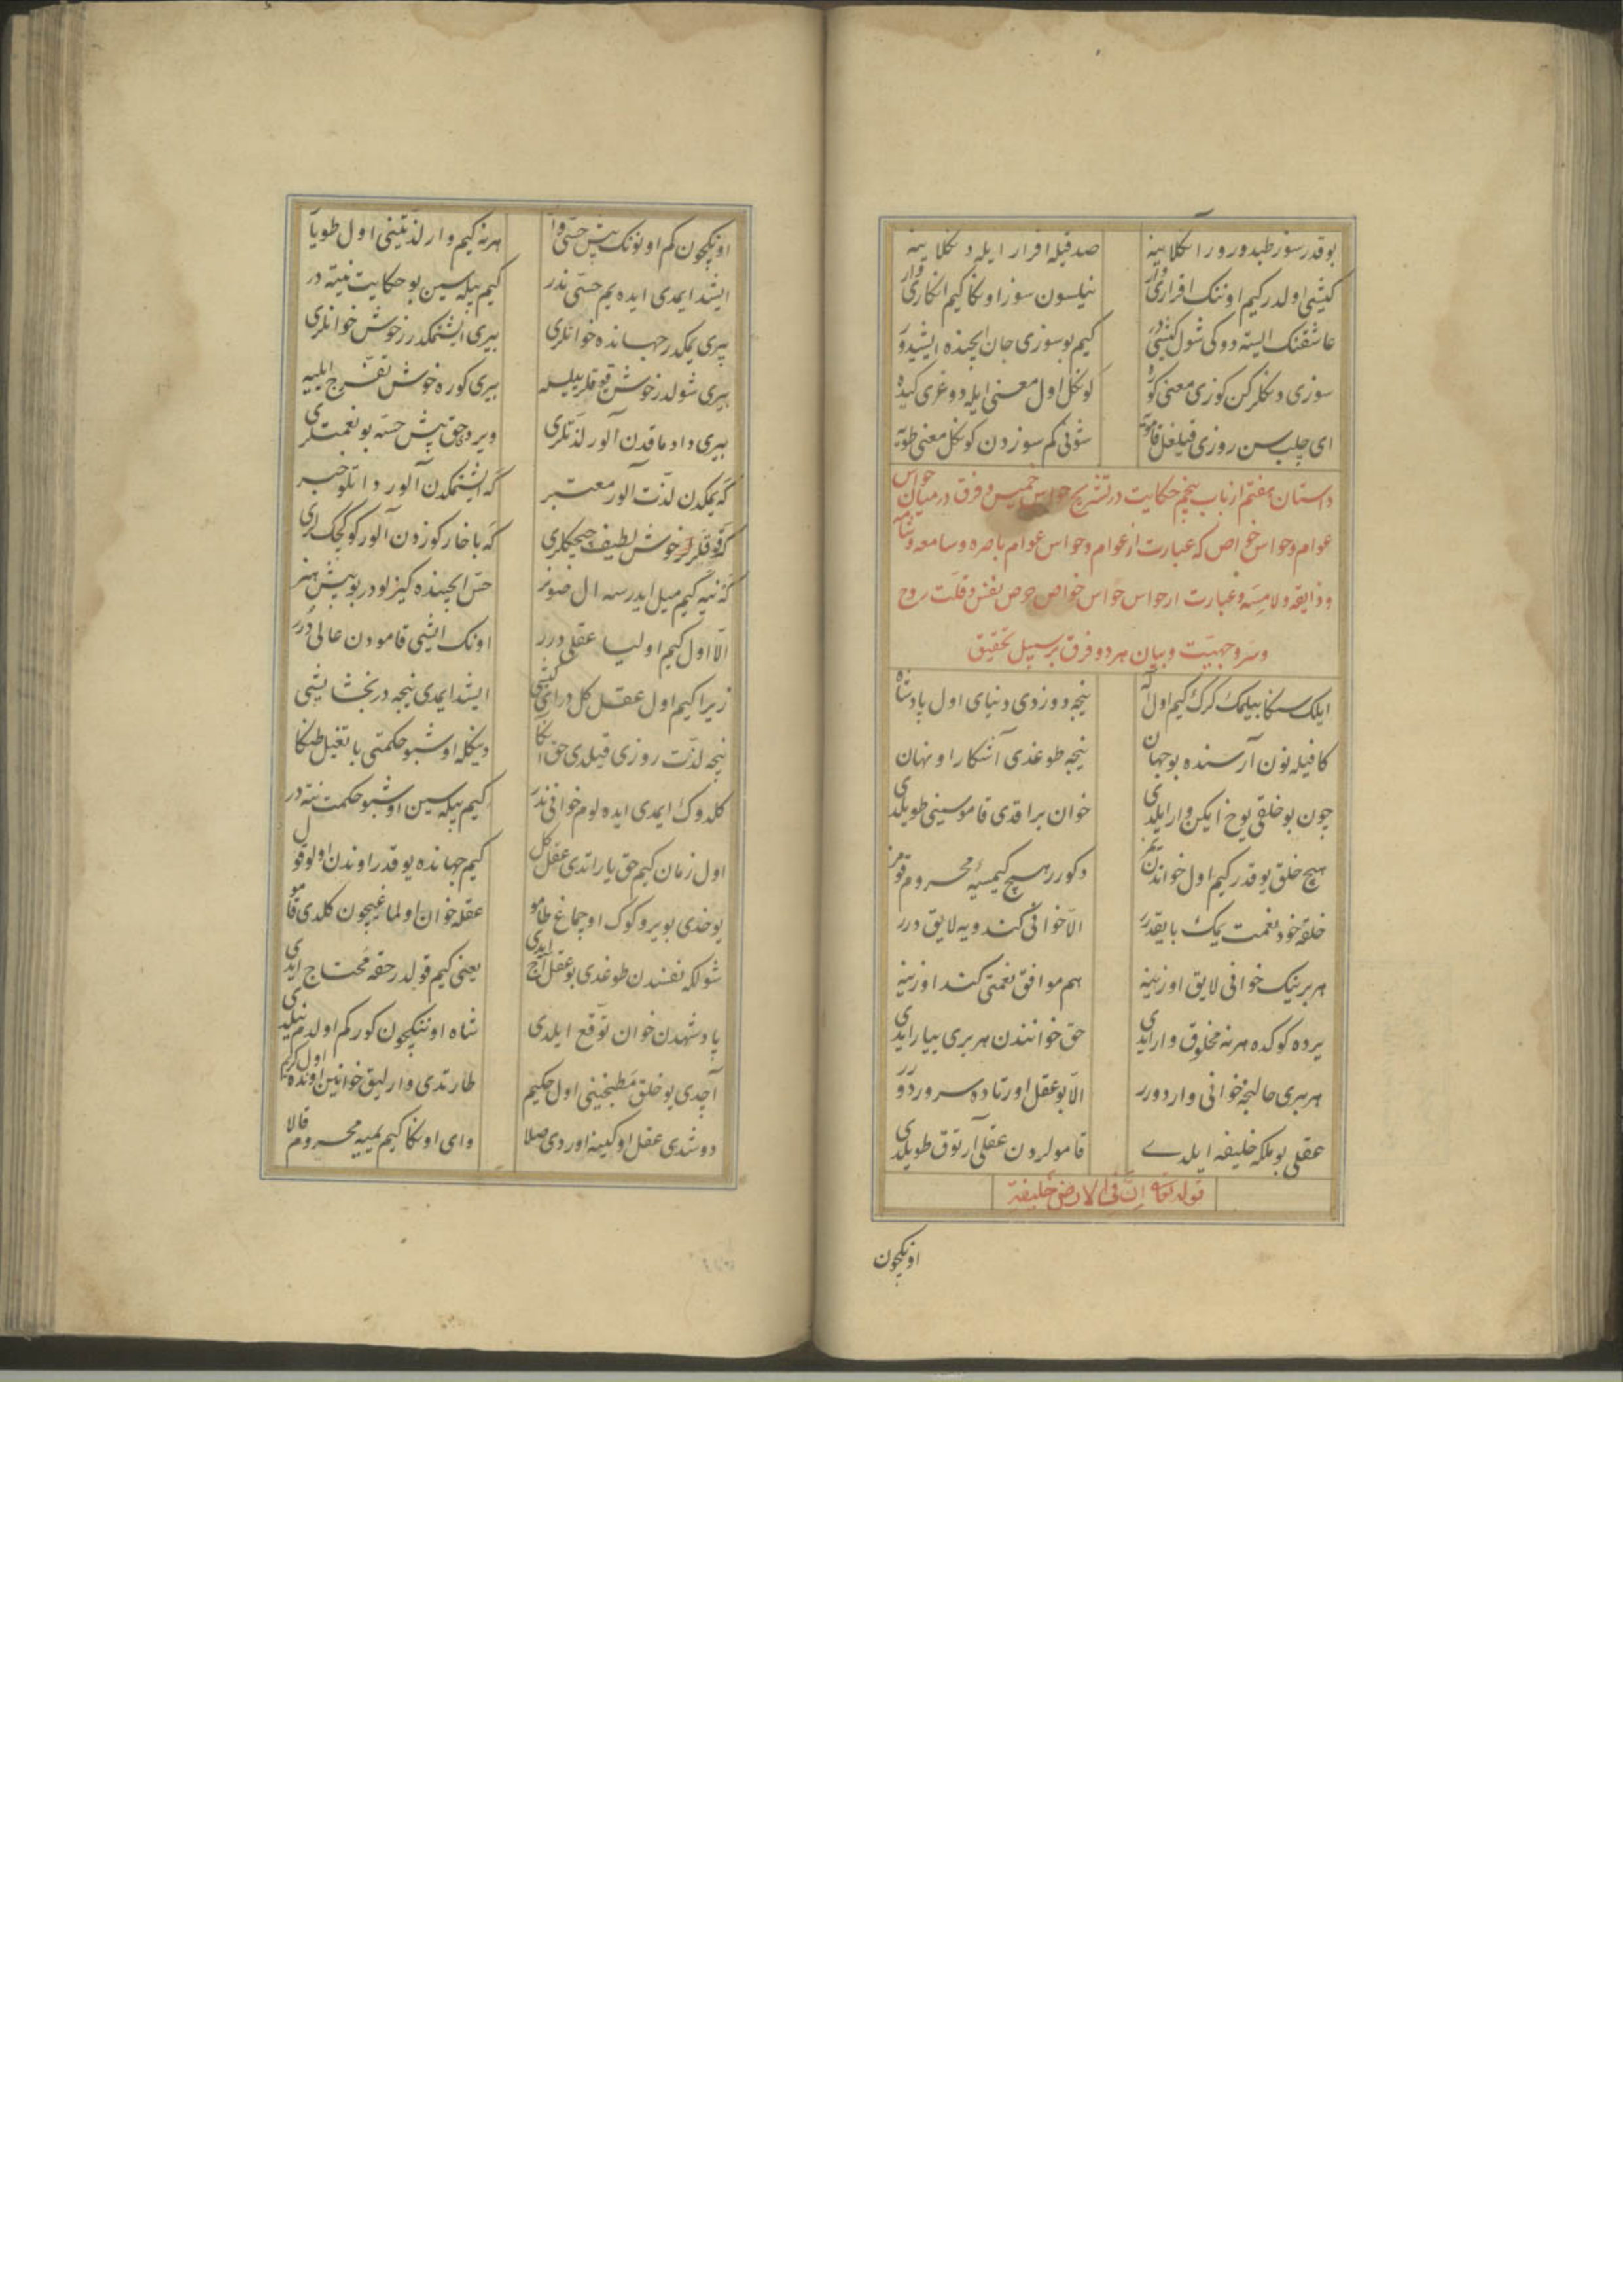 بوقدر سوز طبدورور اكلاينه صدقيله اقرار ايله دكلاينه
كيشی اولدر كيم اونك اقراری وار نيلسون سوز اوكا كيم انكاری وار
عاشقنك ايسته دوكی شول كيشی در كيم بو سوزی جان ايچنده ايشيدور
سوزی دكلركن كوزی معنی كوره كوكل اول معنی ايله دوغری كيده
ای چلب سن روزی قيلغل قامويه شونی كم سوزدن كوكل معنی طويه
داستان هفتم از باب پنجم حكايت در تشريح حواس خميس و فرق درميان حواس
عوام و حواس خواص كه عبارت از عوام و حواس عوام باصره و سامعه و شامه
و ذايقه و لامسه و عبارت از حواس حواس خواص حرص نفس و قلت روح
و سر و جهيت و بيان هر دو فرق بر سبيل تحقيق
ايلك سكا بيلمك كرك كيم اول اله نيجه دوزدی دنيای اول پادشاه
كافيله نون آرسنده بو جهان نيجه طوغدی آشكارا و نهان
چون بو خلقی يوخ ايكن وار ايلدی خوان براقدی قاموسينی طويلدی
هيچ خلق يوقدر كيم اول خواندن يمز دكورر هيچ كيمسيه محروم قومز
خلقه خود نعمت يمك بايقدر الا خوانی كندويه لايق درر
هر برينك خوانی لايق اوزينه هم موافق نعمتی كند اوزينه
يرده كوكده هر نه مخلوق وار ايدی حق خواندن هر بری ييار ايدی
هر بری حالنجه خوانی وار دورر الا بو عقل اورتاده سرور دورر
عقلی بو ملكه خليفه ايلدی قامولردن عقلی آرتوق طويلدی
قوله تعالی انی فی الارض خليفة
اونكچون
اونكچون كم اونك بيش حسی وار هر نه كيم وار لذتينی اول طويار
ايشد ايمدی ايده يم حسی ندر كيم بيله سين بو حكايت نيته در
بيری يمكدر جهانده خوانلری بيری ايشتمكدر خوش خوانلری
بيری شولدر خوش قوقلر ييلسه بيری كوره خوش تفرج ايليه
بيری داد ماقدن آلور لذتلری ويردی حق بيش حسه بو نعمتلری
كه يمكدن لذت آلور معتبر كه ايشتمكدن آلور داتلو خبر
كه قوقلر خوش لطيف چيچكلری كه باخار كوزدن آلور كوكچكلری
كه نيه كيم ميل ايدرسه ال صونر حس ايچنده كيزلودر بو بيش هنر
الا اول كيم اوليا عقلی درر اونك ايشی قامودن عالی درر
زيرا كيم اول عقل كل در ای كيشی ايشد ايمدی نيجه در بخشايشی
نيجه لذت روزی قيلدی حق اكا ديكله اوشبو حكمتی باتغيل طكا
كلدوك ايمدی ايده لوم خوانی ندر كيم بيله سين اوشبو حكمت نته در
اول زمان كيم حق ياراتدی عقل كل كيم جهانده يوقدر اوندن اولو قول
يوخدی بو ير و كوك اوچماغ طامو عقله خوان اولماغيچون كلدی قامو
شولكه نفسندن طوغدی بو عقل آج ايدی يعنی كيم قولدر حقه محتاج ايدی
پادشهدن خوان توقع ايلدی شاه اونكچون كور كم اولدم نيلدی
آچدی بو خلق مطبخينی اول حكيم طارتدی وارليق خوانين اونده اول كريم
دوشدی عقل اوكينه اوردی صلا وای اوكا كيم يميه محروم قالا